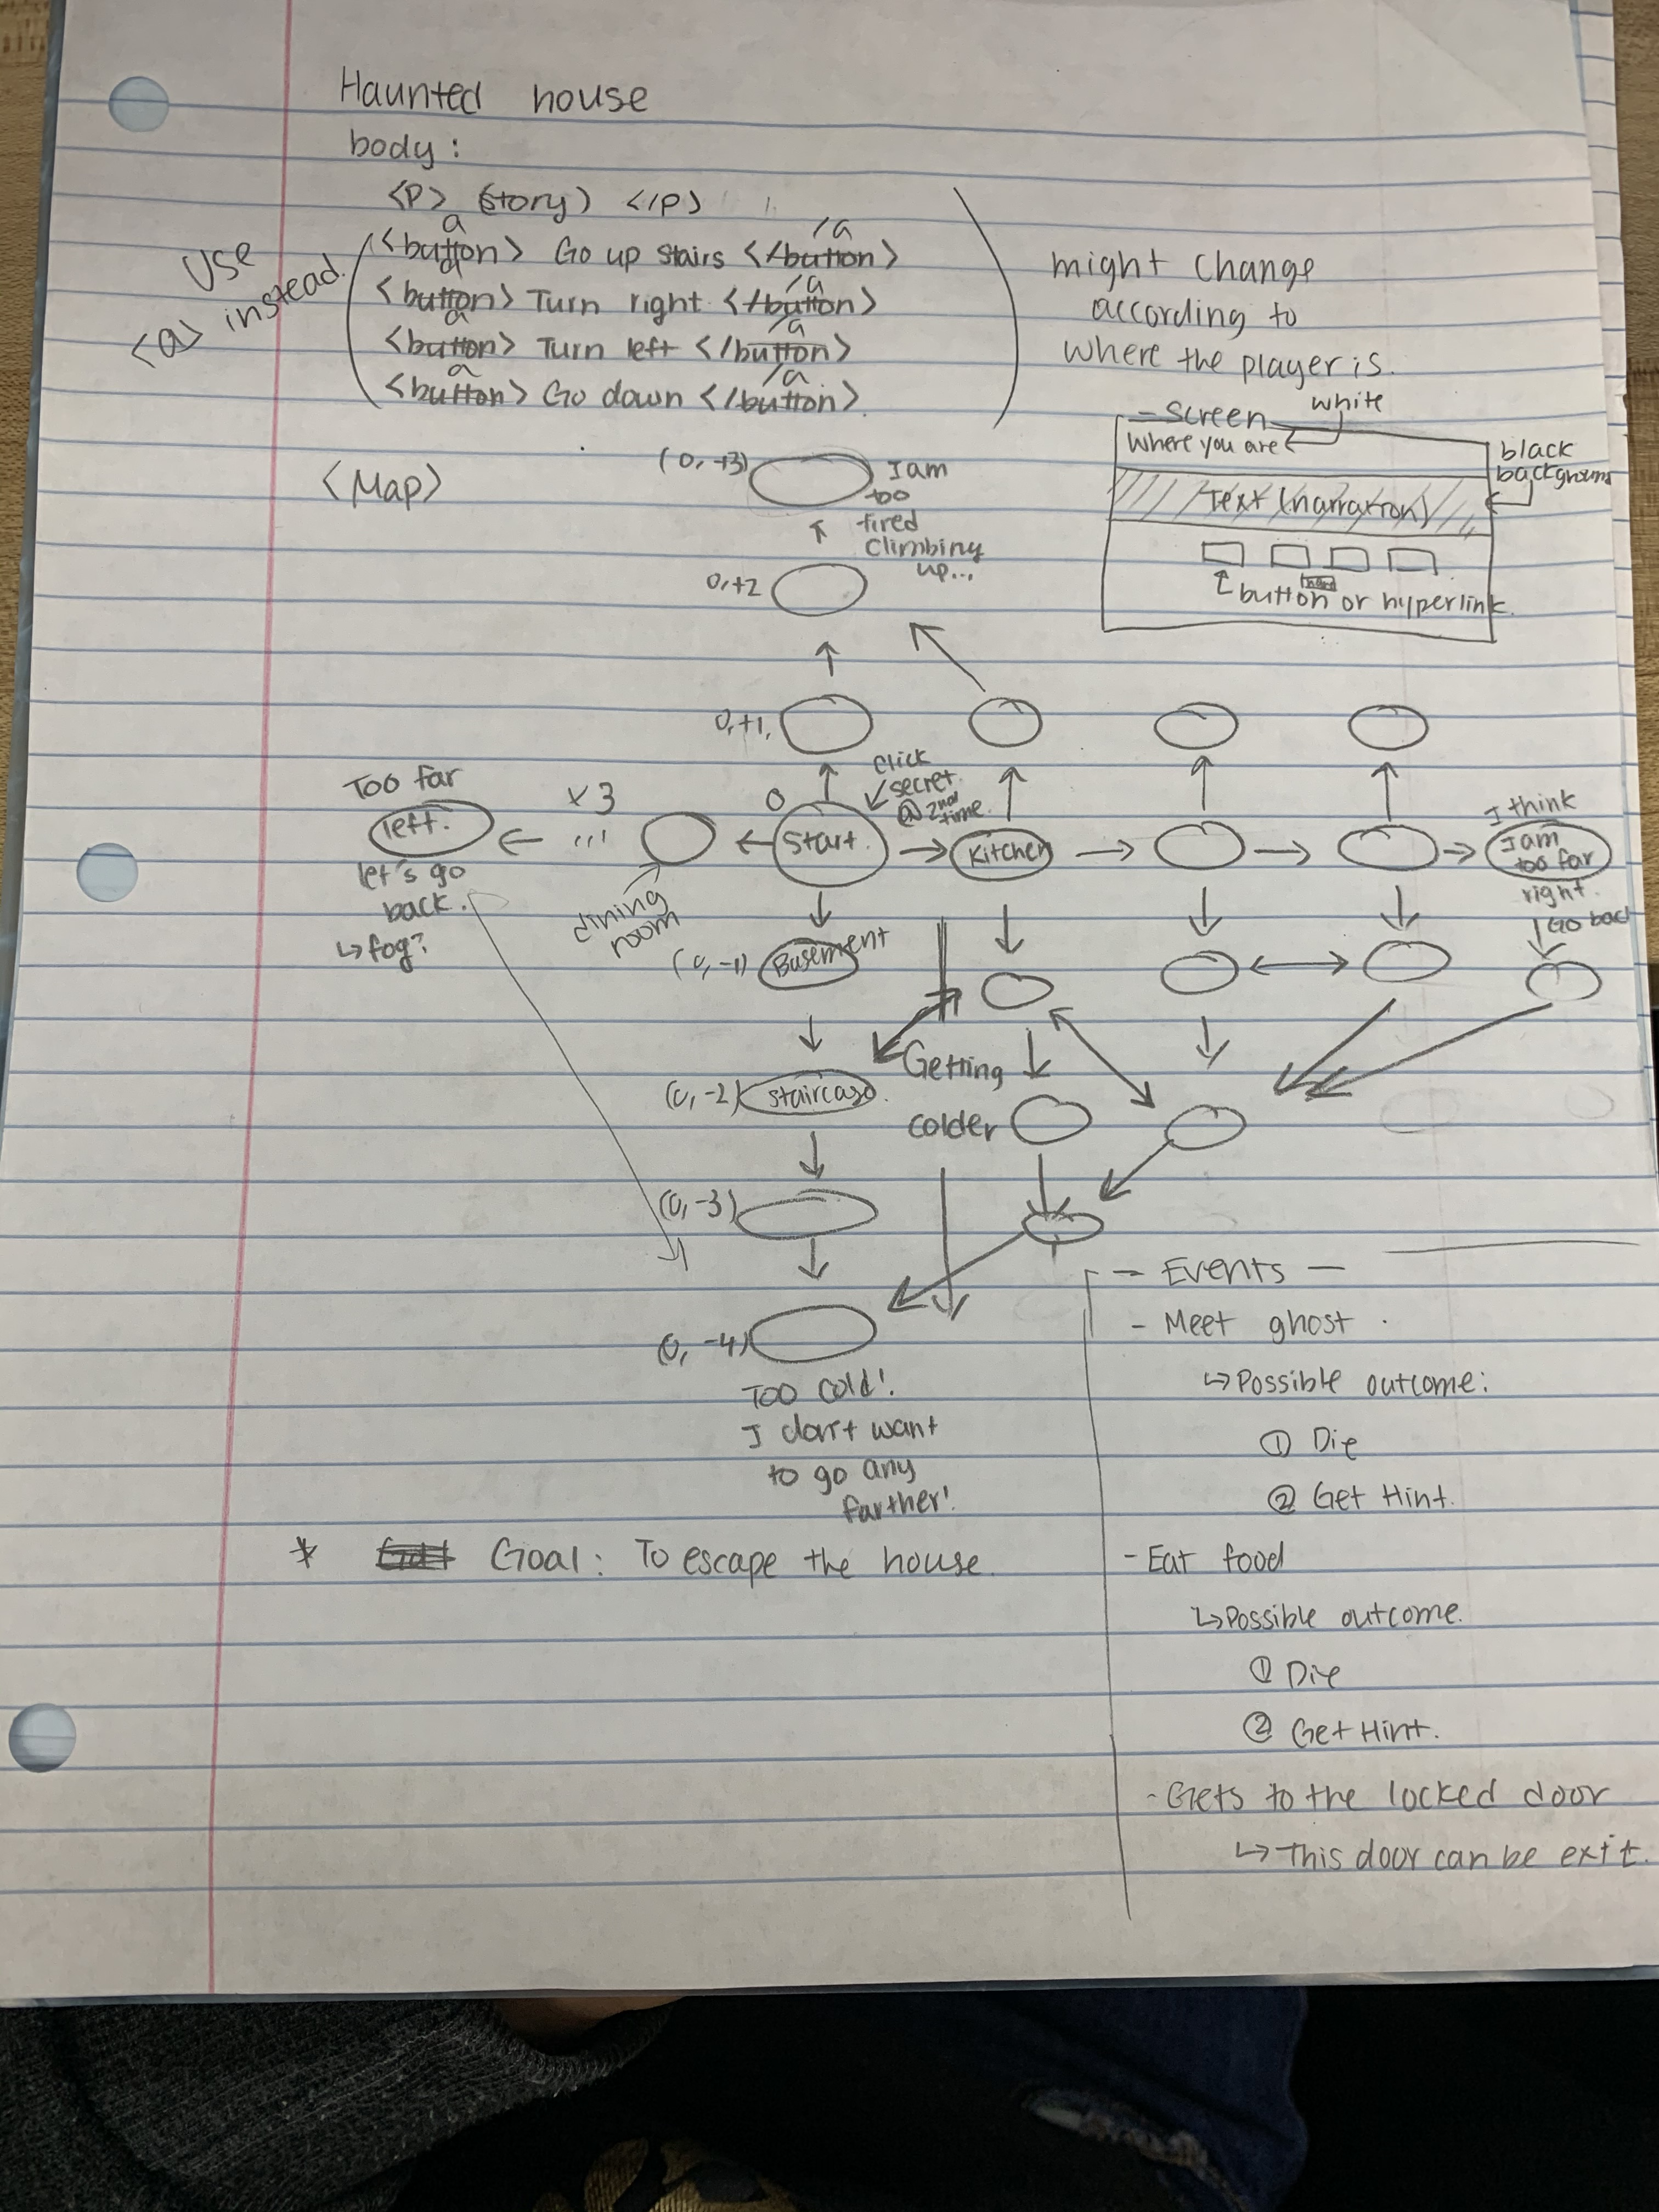 Haunted house
body:
<P> (story) </P>
Use
<a> instead.
<button> a Go up stairs </button> /a
<button> a Turn right </button> /a
<button> a Turn left </button> /a
<button> a Go down </button> /a
might change
according to
where the player is.
- Screen
white
Where you are
black
background
Text (narration)
button or hyperlink.
<Map>
(0, +3)
I am
too
tired
climbing
up...
0, +2
0, +1,
Click
secret.
@ 2nd
time.
Too far
left.
let's go
back.
↳ fog?
x 3
...
dining
room
0
Start.
Kitchen
I think
I am
too far
right.
Go back
(0, -1) Basement
(0, -2) Staircase.
Getting
colder
(0, -3)
(0, -4)
Too cold!
I don't want
to go any
farther!
* Goal: To escape the house.
- Events -
- Meet ghost.
↳ Possible outcome:
① Die
② Get Hint.
- Eat food
↳ Possible outcome.
① Die
② Get Hint.
- Gets to the locked door
↳ This door can be exit.